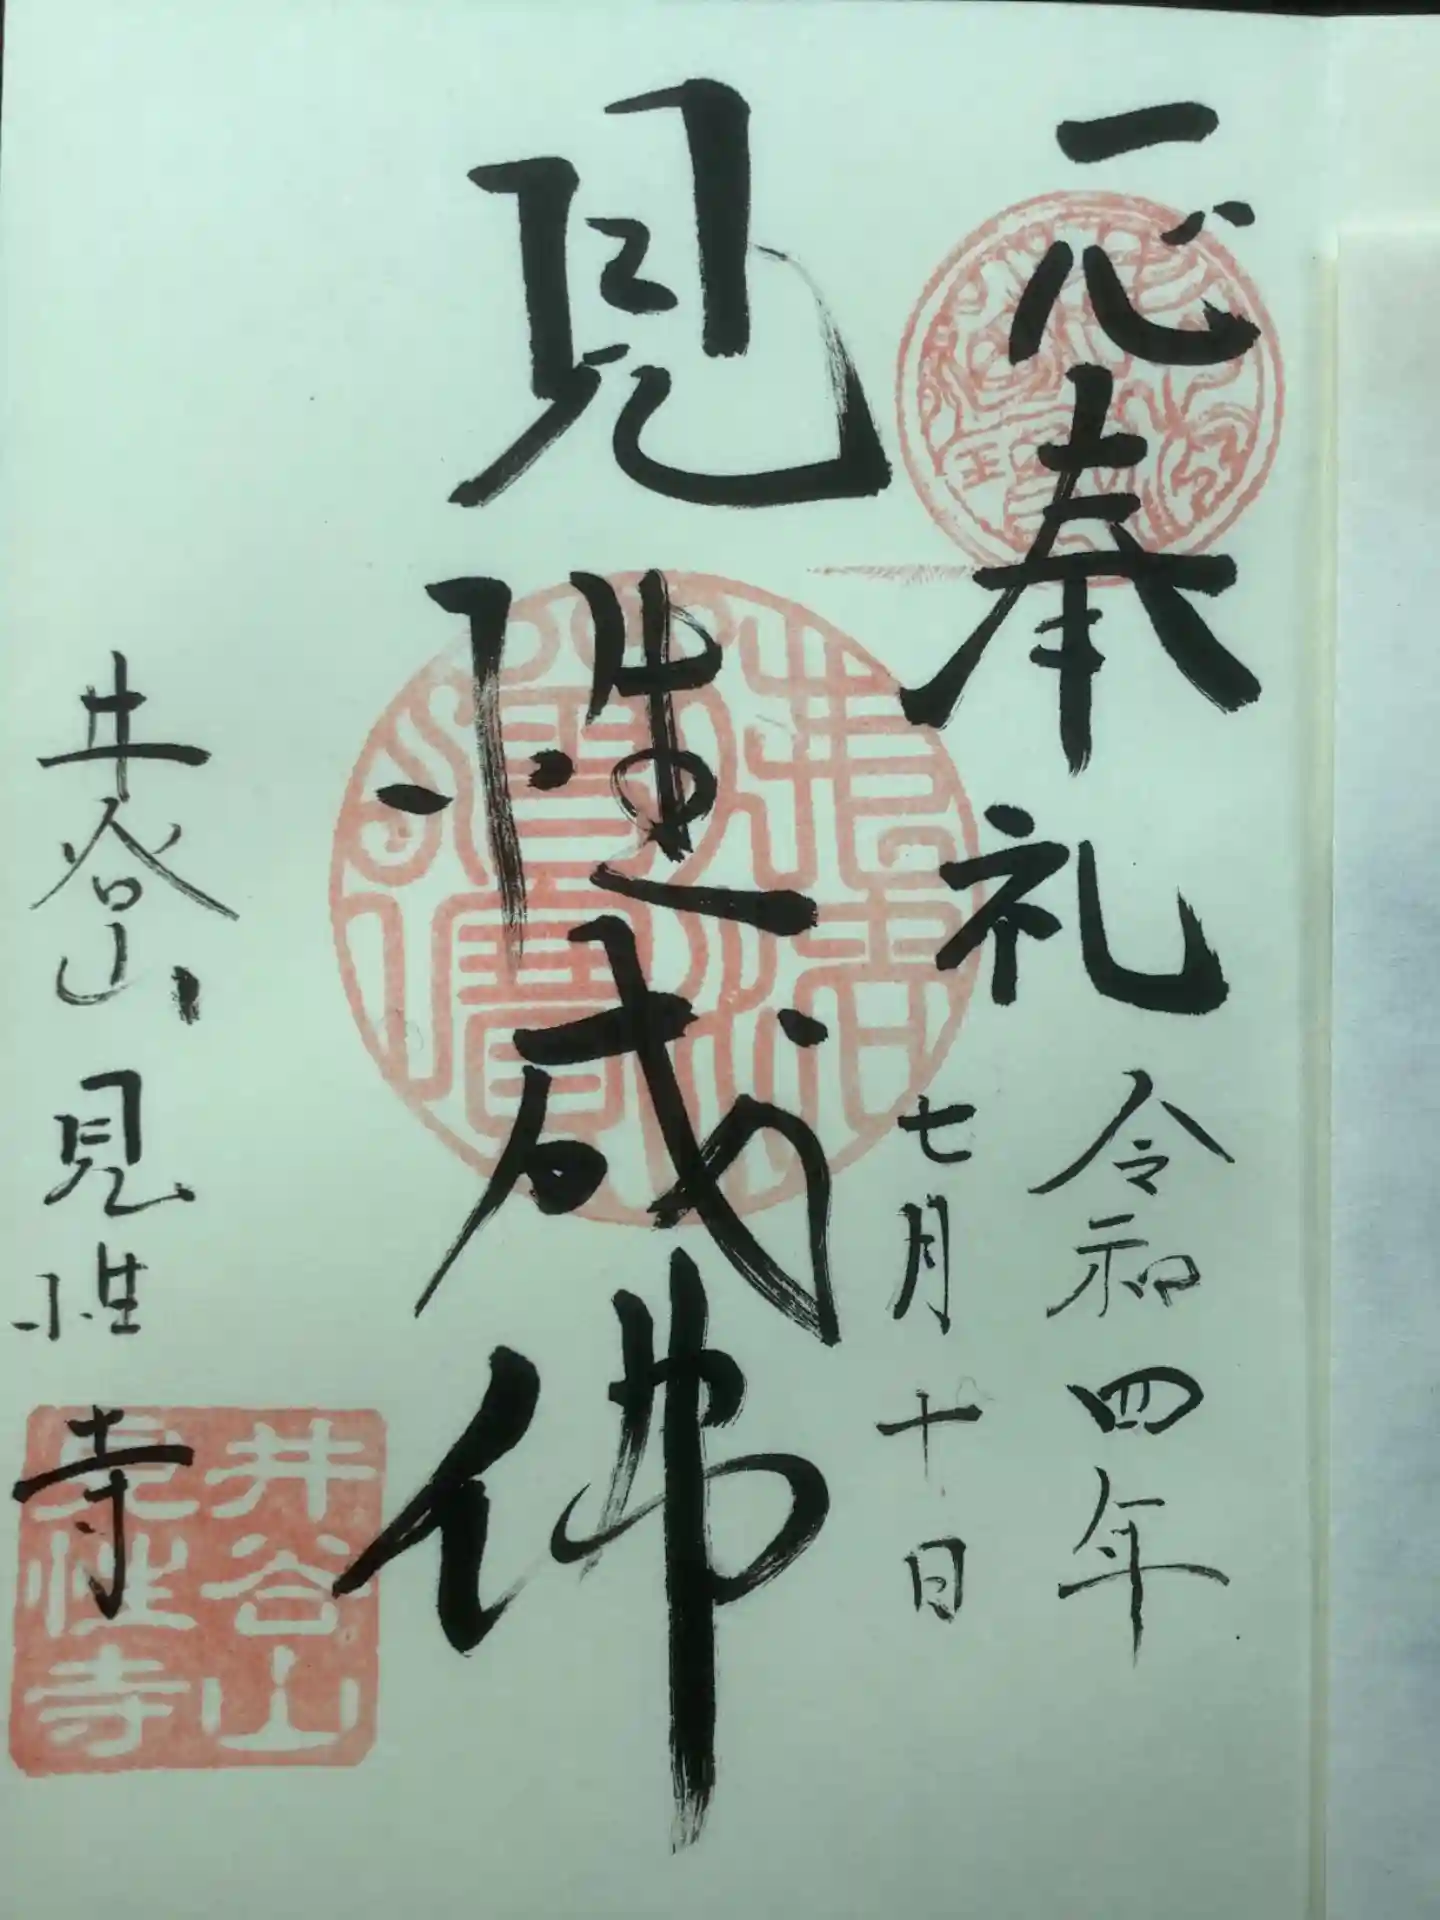 一心奉礼
令和四年
七月十日
見性成佛
井谷山見性寺
井谷山
見性寺
佛法
僧寶